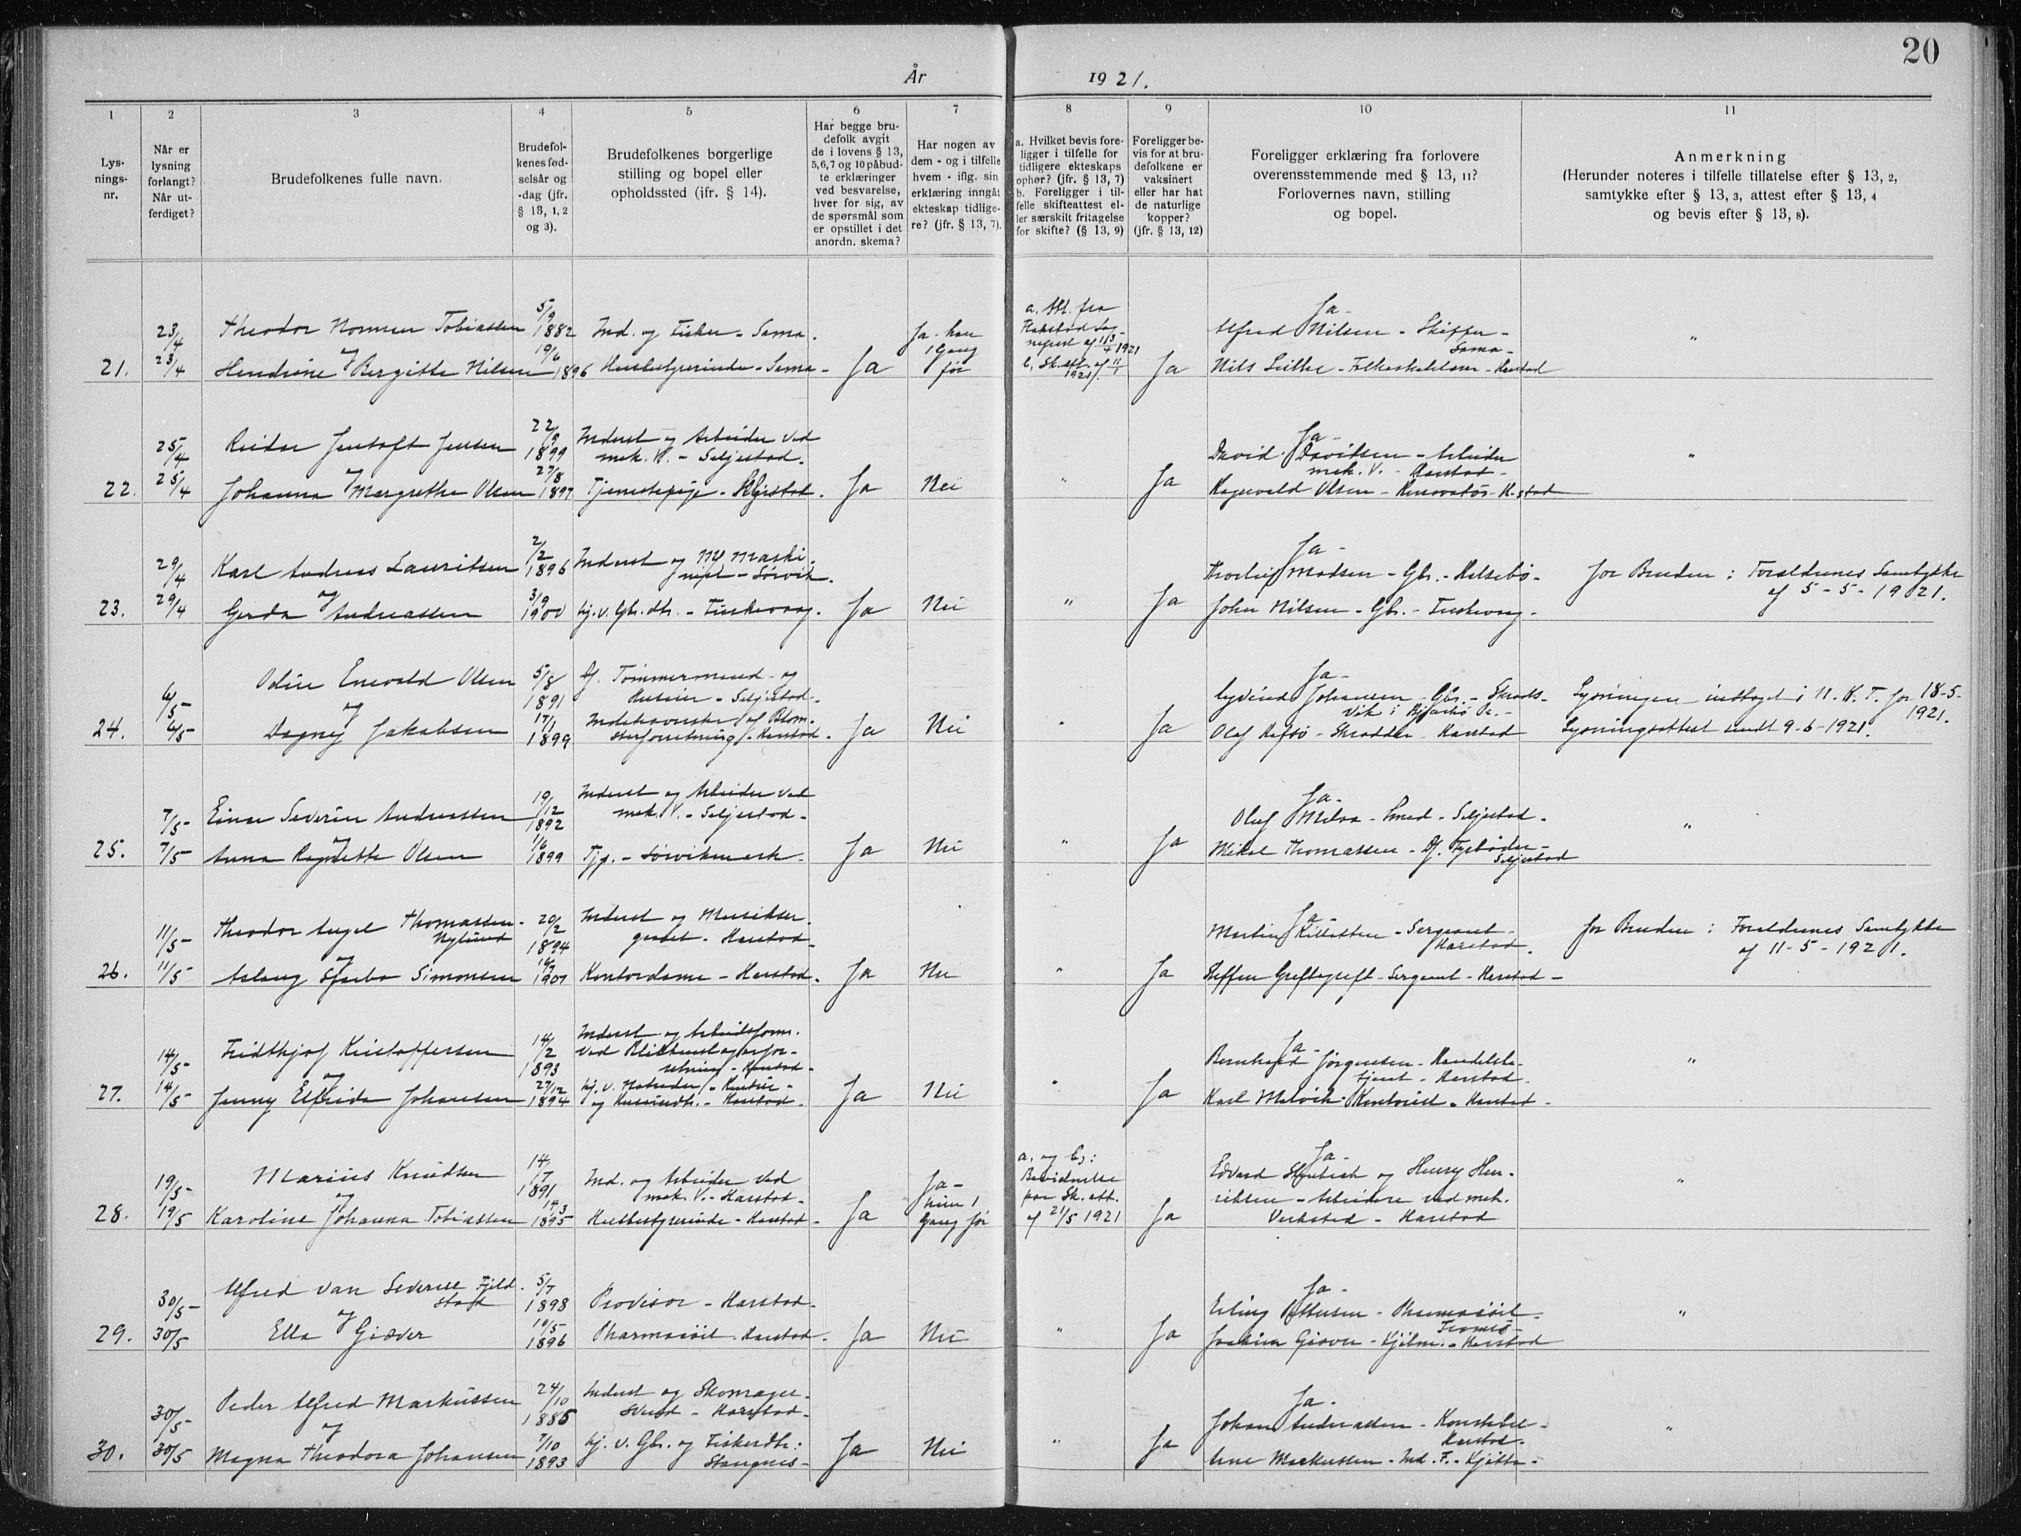 20
År 1921.
1 2 3 4 5 6 7 8 9 10 11
Lys-
nings-
nr.
Når er
lysning
forlangt?
Når ut-
ferdiget?
Brudefolkenes fulle navn.
Brudefol-
kenes fød-
selsår og
-dag (jfr.
§ 13, 1, 2
og 3).
Brudefolkenes borgerlige
stilling og bopel eller
opholdssted (jfr. § 14).
Har begge bru-
defolk avgit
de i lovens § 13,
5, 6, 7 og 10 påbud-
te erklæringer
ved besvarelse,
hver for sig, av
de spørsmål som
er opstillet i det
anordn. skema?
Har nogen av
dem - og i tilfelle
hvem - iflg. sin
erklæring inngåt
ekteskap tidlige-
re? (jfr. § 13, 7).
a. Hvilket bevis fore-
ligger i tilfelle for
tidligere ekteskaps
ophør? (jfr. § 13, 7)
b. Foreligger i til-
felle skifteattest el-
ler særskilt fritagelse
for skifte? (§ 13, 9)
Foreligger be-
vis for at bru-
defolkene er
vaksinert
eller har hat
de naturlige
kopper?
(jfr. § 13, 12)
Foreligger erklæring fra forlovere
overensstemmende med § 13, 11?
Forlovernes navn, stilling
og bopel.
Anmerkning
(Herunder noteres i tilfelle tillatelse efter § 13, 2,
samtykke efter § 13, 3, attest efter § 13, 4
og bevis efter § 13, 8).
21.
23/4
23/4
Theodor Normen Tobiassen
og
Hendrine Bergitte Nilsen
5/9
1882
19/6
1896
Ind. og Fisker - Sama.
Husbestyrerinde - Sama -
Ja
Ja - han
1 Gang
før
1921
Ja
Ja -
Alfred Nilsen - Skipper -
Sama -
Nils - Harstad
"
22.
25/4
25/4
Reidar Jentoft Jensen
og
Johanna Margrethe Olsen
22/9
1899
27/8
1897
Inderst og Arbeider ved
mek. V. - Seljestad.
Tjenestepige - Seljestad.
Ja
Nei
"
Ja
Ja -
David Davidsen - Arbeider
mek. V. - Harstad -
Ragnvald Olsen - - H.stad
"
23.
29/4
29/4
Karl Andreas Lauritsen
og
Gerda Andreassen
2/2
1896
3/9
1900
Inderst og Maski-
nist - Sørvik.
hj. v. Gbr. dtr. -
Ja
Nei
"
Ja
Ja -
Thorleif Madsen - Gbr. -
John Nilsen - Gbr. -
for Bruden: Foreldrenes Samtykke
af 5-5-1921.
24.
6/5
6/5
Odin Enevold Olsen
og
Dagny Jakobsen
5/8
1891
17/1
1899
Uf. Tømmermand - og
Huseier - Seljestad -
af Blom-
sterforretning - Harstad -
Ja
Nei
"
Ja
Ja -
Johansen - Gbr. -
Olaf - Skrædder - Harstad
Lysningen indtaget i N. K. T. for 18-5-
1921.
Lysningsattest sendt 9-6-1921.
25.
7/5
7/5
Einar Severin Andreassen
og
Anna Ragnethe Olsen
19/12
1892
1/6
1899
Inderst og Arbeider ved
mek. V. - Seljestad -
Tjp. - Sørvikmark -
Ja
Nei
"
Ja
Ja -
Oluf - Smed - Seljestad -
Mikal Thomassen - Uf. Fyrbøder -
Seljestad
"
26.
11/5
11/5
Theodor Angel Thomassen -
Nylund
og
Aslaug Simonsen
20/2
1894
1901
Inderst og Musikser-
gent - Harstad -
Kontordame - Harstad.
Ja
Nei
"
Ja
Ja -
Martin - Sergeant -
Harstad.
Steffen - Sergeant - Harstad -
for Bruden: Foreldrenes Samtykke
af 11-5-1921.
27.
14/5
14/5
Fridthjof Kristoffersen
og
Jenny Elfrida Johansen
14/2
1893
27/12
1894
Inderst og Arbeidsform.
ved Blikkenslagerfor-
retning - Harstad -
hj. v. Moderen -
og - Harstad -
Ja
Nei
"
Ja
Ja -
Bernhard Jørgensen - Handelsbe-
tjent - Harstad -
Karl - Kontorist - Harstad -
"
28.
19/5
19/5
Marius Knudsen
og
Karoline Johanna Tobiassen
14/7
1891
14/3
1895
Ind. og Arbeider ved
mek. V. - Harstad -
Husbestyrerinde - Harstad -
Ja
Ja -
hun 1
Gang før
a. og b:
Bevidnelse
paa Sk. att.
af 21/5 1921
Ja
Ja -
Edvard og Henry Hen-
riksen - Arbeidere ved mek.
Verksted - Harstad
"
29.
30/5
30/5
Alfred van Severen Fjeld-
stad
og
Ella Giæver
5/7
1898
10/5
1896
Provisor - Harstad -
Pharmasöit - Harstad.
Ja
Nei
"
Ja
Ja -
Erling - Pharmasöit -
Tromsø -
Joakim Giæver - - Harstad
"
30.
30/5
30/5
Peder Alfred Markussen
og
Magna Theodora Johansen
24/10
1885
7/10
1893
Inderst og Skomager-
svend - Harstad -
hj. v. Gbr. og Fiskerdtr:
Stangnes -
Ja
Nei
"
Ja
Ja -
Johan Andreassen - Konstabel -
Harstad -
Arne Markussen - Ind. F. - Kjøtta -
"